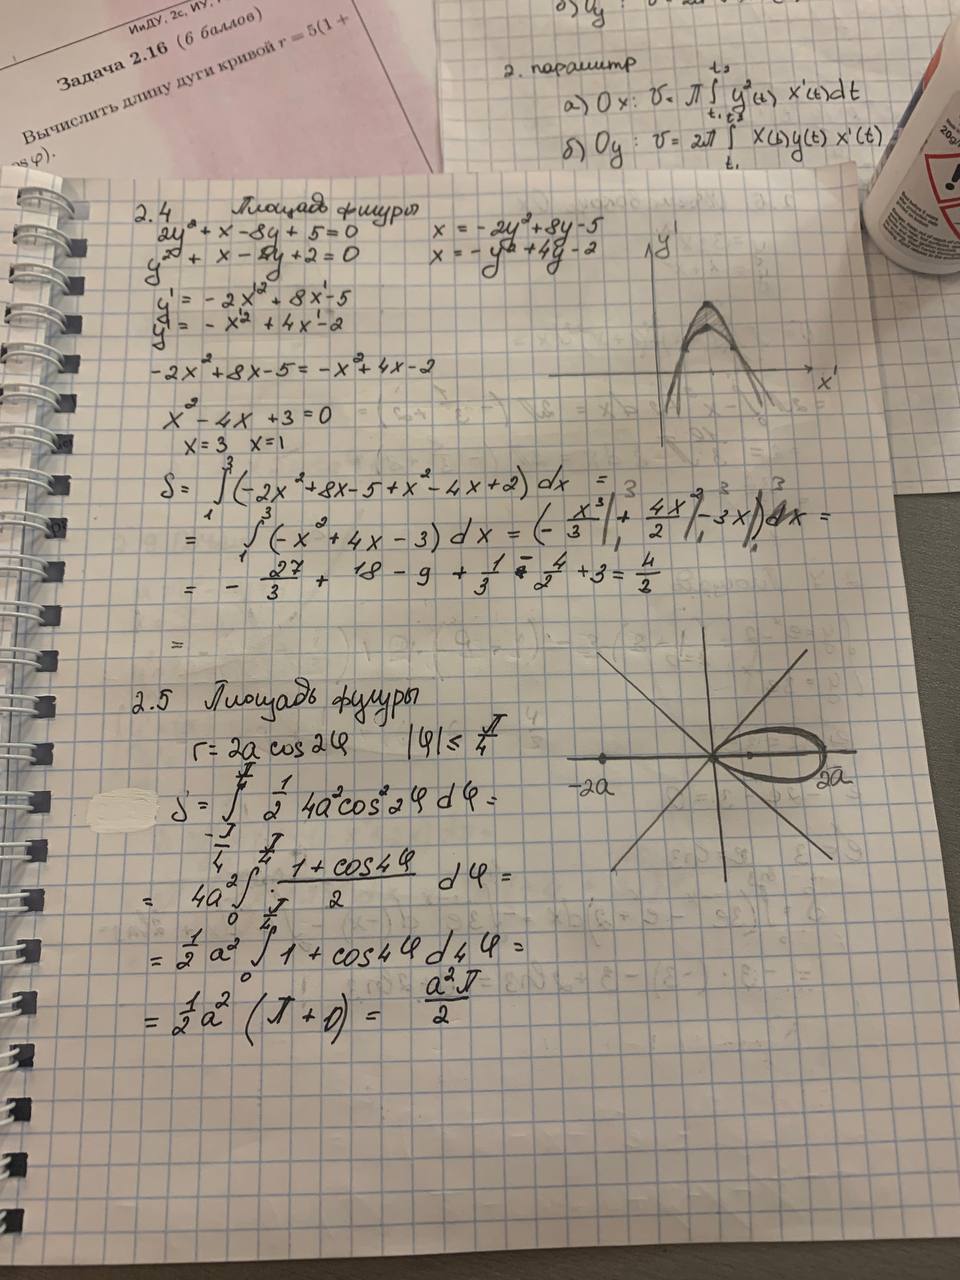 ИиДУ, 2с, ИУ,
Задача 2.16 (6 баллов)
Вычислить длину дуги кривой r = 5(1 +
os φ).
б) Oy :
2. параметр
а) Ox: v = π ∫ y²(t) x'(t)dt
б) Oy : v = 2π ∫ x(t)y(t) x'(t)
2.4 Площадь фигуры
2y² + x - 8y + 5 = 0 x = -2y² + 8y - 5
y² + x - 4y + 2 = 0 x = -y² + 4y - 2
y' = -2x'² + 8x' - 5
y' = -x'² + 4x' - 2
-2x² + 8x - 5 = -x² + 4x - 2
x² - 4x + 3 = 0
x = 3 x = 1
y'
x'
S = ₁∫³ (-2x² + 8x - 5 + x² - 4x + 2) dx =
= ₁∫³ (-x² + 4x - 3) dx = (- x³/3 |₁³ + 4x²/2 |₁³ - 3x |₁³) =
= - 27/3 + 18 - 9 + 1/3 - 4/2 + 3 = 4/3
=
2.5 Площадь фигуры
r = 2a cos 2φ |φ| ≤ π/4
-2a 2a
S = ∫ 1/2 4a² cos² 2φ dφ =
= 4a² ∫ · (1 + cos4φ)/2 dφ =
= 1/2 a² ∫ 1 + cos4φ d4φ =
= 1/2 a² (π + 0) = a²π/2